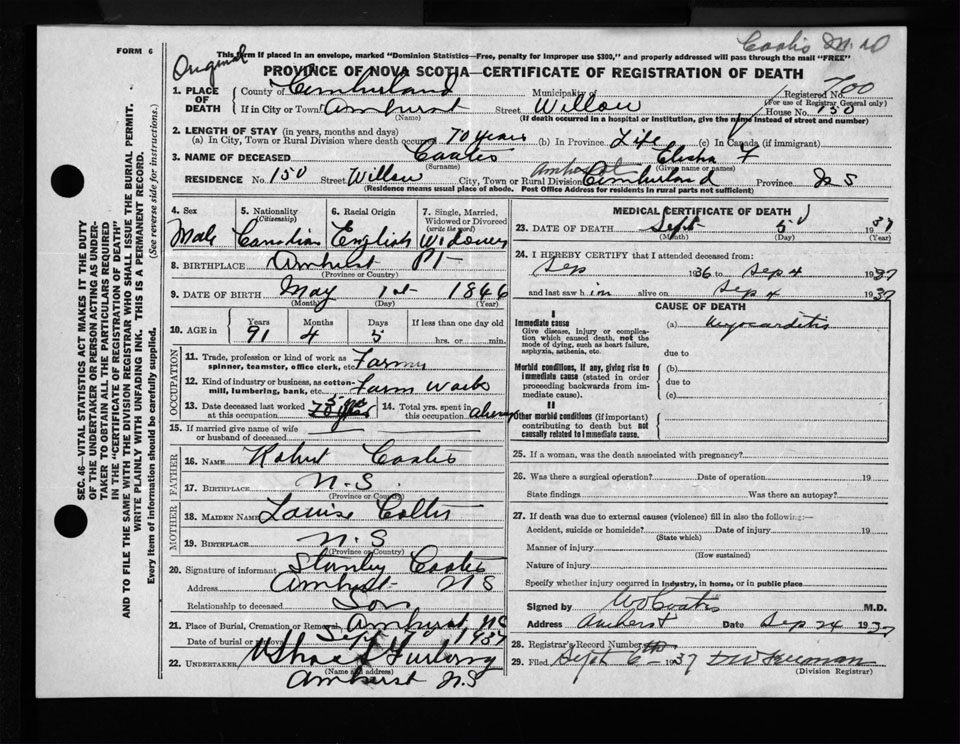 Coates M. D
FORM 6
Original
This Form if placed in an envelope, marked "Dominion Statistics—Free, penalty for improper use $300," and properly addressed will pass through the mail "FREE"
PROVINCE OF NOVA SCOTIA—CERTIFICATE OF REGISTRATION OF DEATH
1. PLACE OF DEATH
County of Cumberland Municipality of Registered No. 700
(For use of Registrar General only)
If in City or Town Amherst Street Willow House No. 150
(Name) (If death occurred in a hospital or institution, give the name instead of street and number)
2. LENGTH OF STAY (in years, months and days)
(a) In City, Town or Rural Division where death occurred 70 years (b) In Province Life (c) In Canada (if immigrant)
3. NAME OF DECEASED Coates Elisha F
(Surname) (Given name or names)
RESIDENCE No. 150 Street Willow City, Town or Rural Division Amherst Cumberland Province N S
(Residence means usual place of abode. Post Office Address for residents in rural parts not sufficient)
4. Sex 5. Nationality (Citizenship) 6. Racial Origin 7. Single, Married, Widowed or Divorced (write the word)
Male Canadian English Widower
8. BIRTHPLACE Amherst Pt
(Province or Country)
9. DATE OF BIRTH May 1st 1846
(Month) (Day) (Year)
10. AGE in Years Months Days If less than one day old
91 4 5 hrs. or min.
OCCUPATION
11. Trade, profession or kind of work as spinner, teamster, office clerk, etc. Farmer
12. Kind of industry or business, as cotton-mill, lumbering, bank, etc. Farm Work
13. Date deceased last worked at this occupation 14. Total yrs. spent in this occupation always
15. If married give name of wife or husband of deceased
FATHER
16. NAME Robert Coates
17. BIRTHPLACE N.S.
(Province or Country)
MOTHER
18. MAIDEN NAME Louise
19. BIRTHPLACE N.S
(Province or Country)
20. Signature of informant Stanley Coates
Address Amherst N S
Relationship to deceased Son
21. Place of Burial, Cremation or Removal Amherst NS
Date of burial or removal Sept 7 1937
22. UNDERTAKER Furlong
(Name and address)
Amherst N.S
MEDICAL CERTIFICATE OF DEATH
23. DATE OF DEATH Sept 5 1937
(Month) (Day) (Year)
24. I HEREBY CERTIFY that I attended deceased from:
Sep 1936 to Sep 4 1937
and last saw him alive on Sep 4 1937
CAUSE OF DEATH
I
Immediate cause (a) Myocarditis
Give disease, injury or complication which caused death, not the mode of dying, such as heart failure, asphyxia, asthenia, etc.
due to
Morbid conditions, if any, giving rise to immediate cause (stated in order proceeding backwards from immediate cause).
(b)
due to
(c)
II
Other morbid conditions (if important) contributing to death but not causally related to immediate cause.
25. If a woman, was the death associated with pregnancy?
26. Was there a surgical operation? Date of operation 19
State findings Was there an autopsy?
27. If death was due to external causes (violence) fill in also the following:—
Accident, suicide or homicide? Date of injury 19
(State which)
Manner of injury
(How sustained)
Nature of injury
Specify whether injury occurred in industry, in home, or in public place
Signed by Coates M.D.
Address Amherst Date Sep 24 1937
28. Registrar's Record Number
29. Filed Sept 6 1937
(Division Registrar)
SEC. 46—VITAL STATISTICS ACT MAKES IT THE DUTY
OF THE UNDERTAKER OR PERSON ACTING AS UNDER-
TAKER TO OBTAIN ALL THE PARTICULARS REQUIRED
IN THE "CERTIFICATE OF REGISTRATION OF DEATH"
AND TO FILE THE SAME WITH THE DIVISION REGISTRAR WHO SHALL ISSUE THE BURIAL PERMIT.
WRITE PLAINLY WITH UNFADING INK. THIS IS A PERMANENT RECORD.
Every item of information should be carefully supplied. (See reverse side for instructions.)